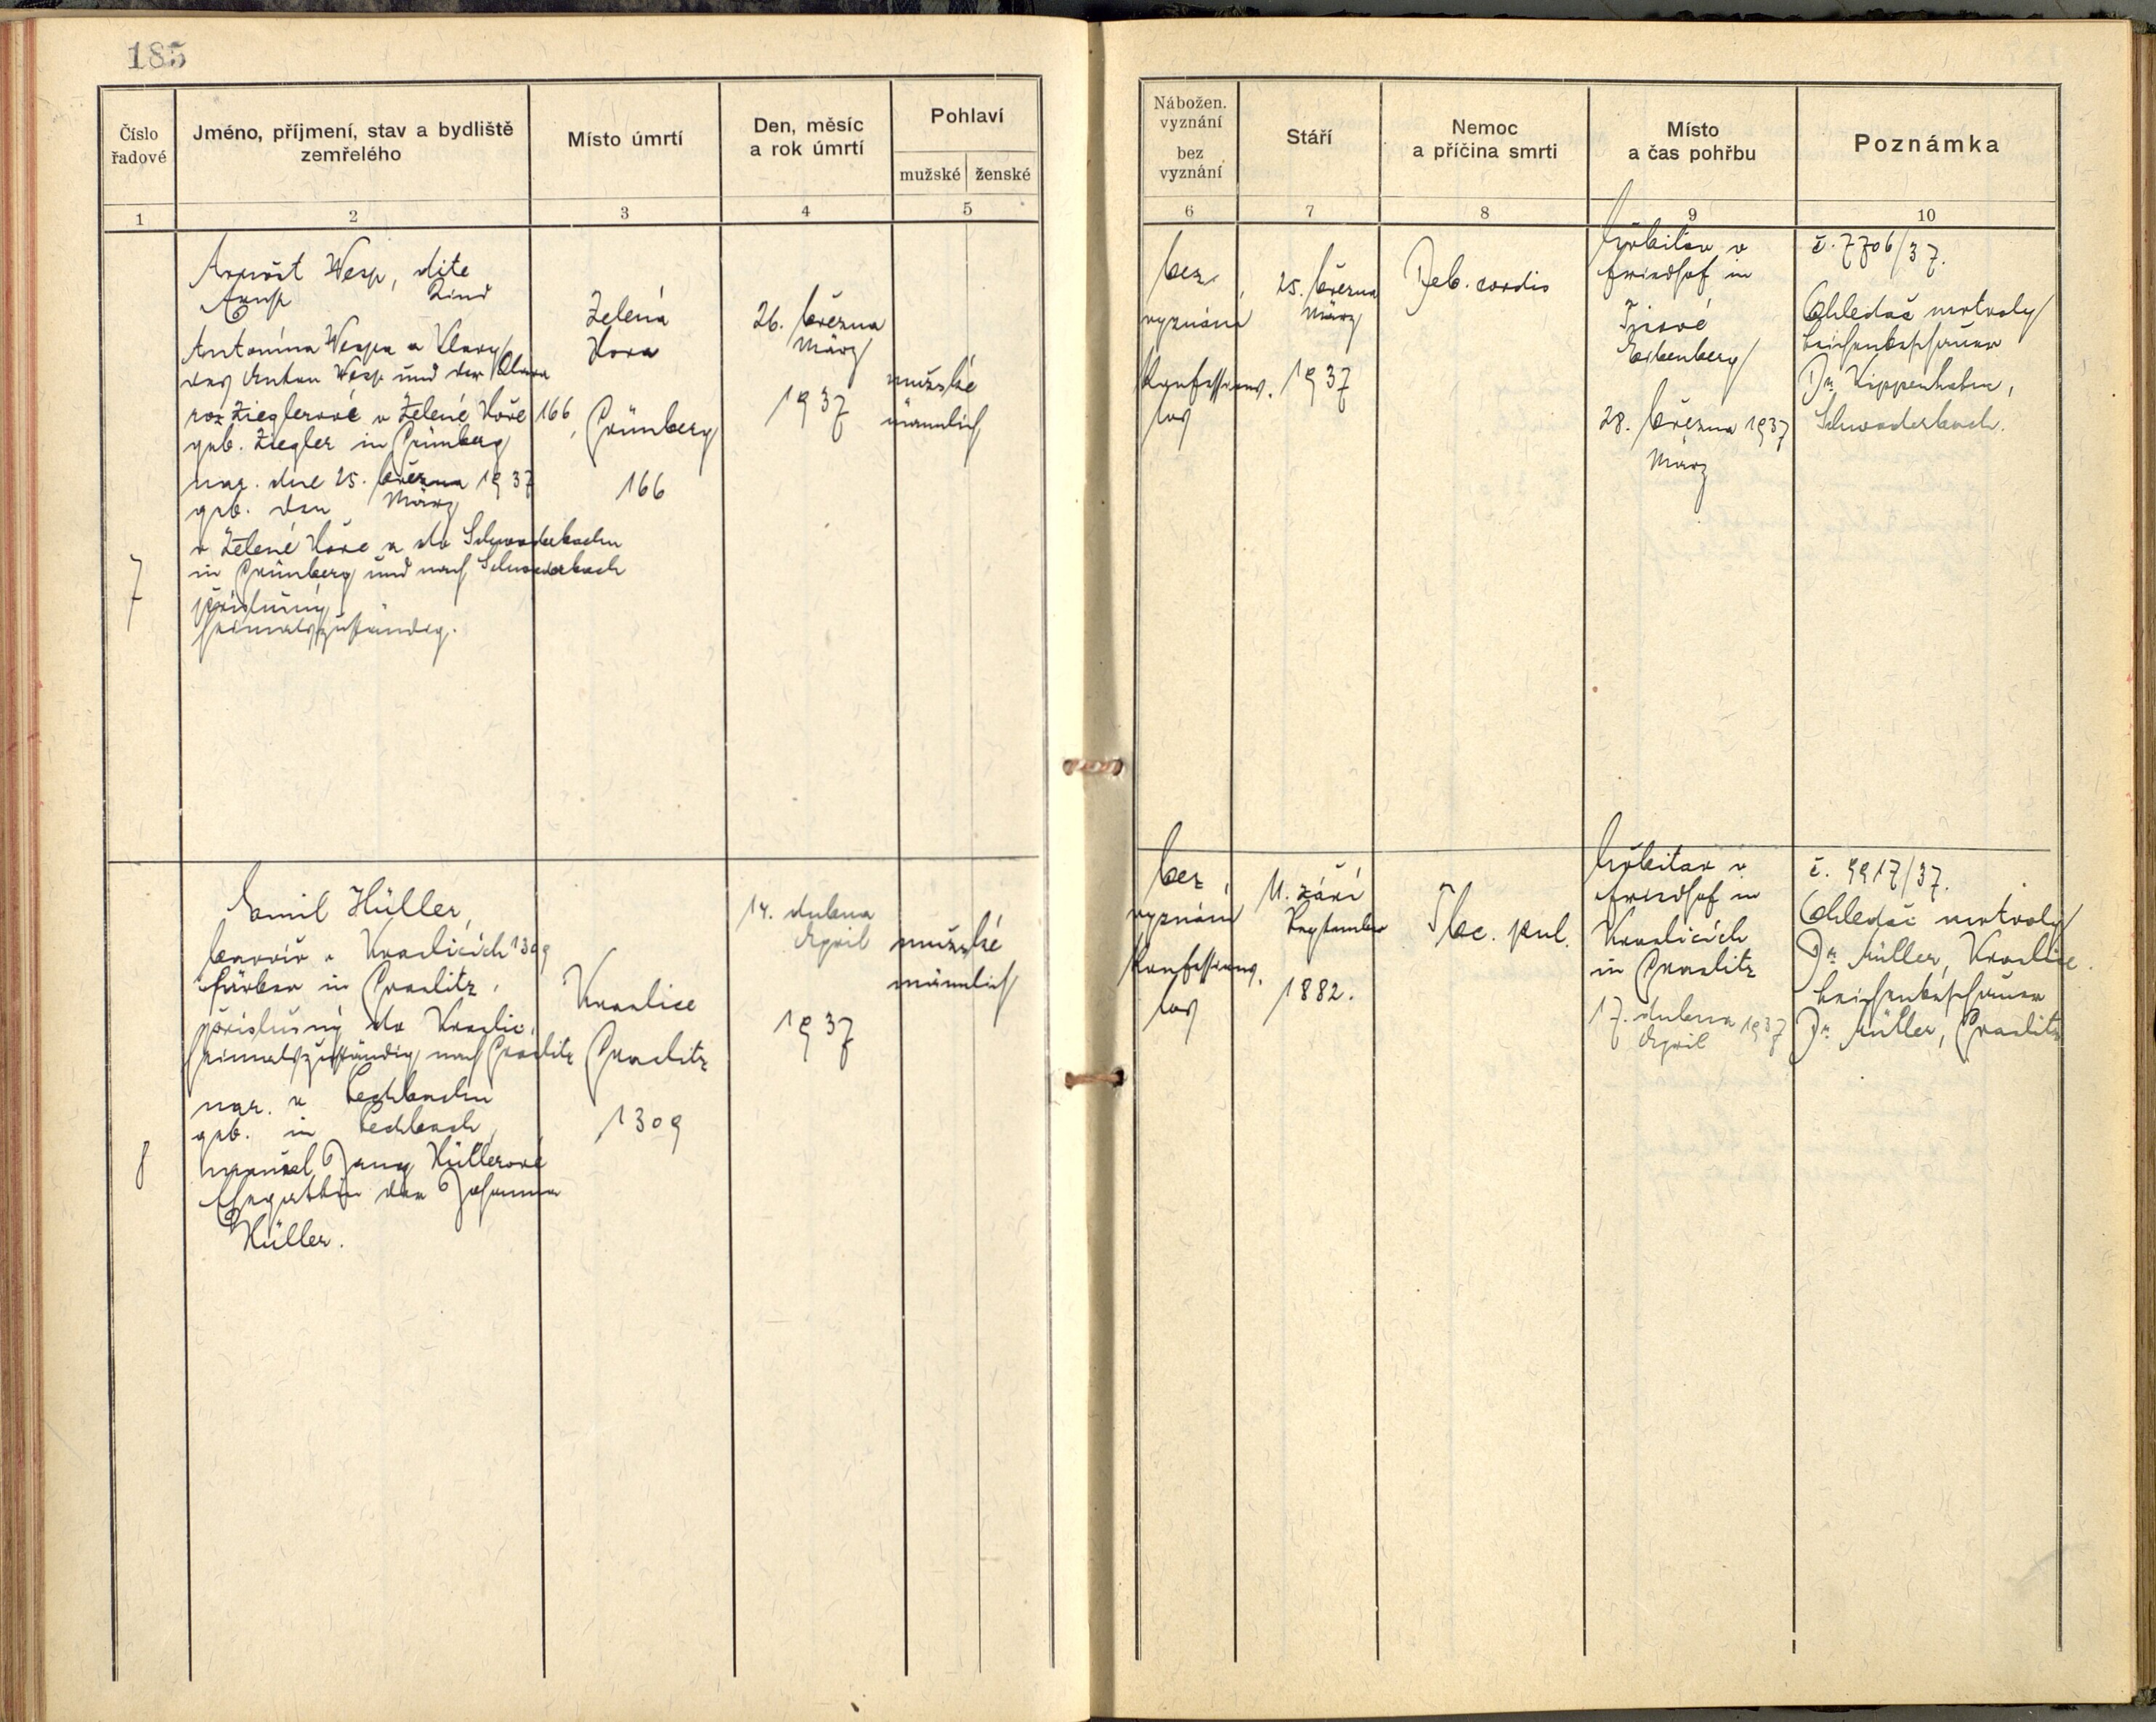 185
Číslo řadové
Jméno, příjmení, stav a bydliště zemřelého
Místo úmrtí
Den, měsíc a rok úmrtí
Pohlaví
mužské
ženské
1
2
3
4
5
7
Arnošt Wesp, dite
Ernst Kind
Antonína Wespa a Klary
des Anton Wesp und der Klara
roz Zieglerové v Zelené Hoře 166,
geb. Ziegler in Grünberg
nar. dne 25. března 1937
geb. den März
v Zelené Hoře a do Schwaderbachu
in Grünberg und nach Schwaderbach
příslušný
heimatszuständig.
Zelená
Hora
Grünberg
166
26. března
März
1937
mužské
männlich
8
Emil Hüller,
barvíř v Kraslicích 1309
Färber in Graslitz,
příslušný do Kraslic,
heimatszuständig nach Graslitz
nar. v Pechbachu
geb. in Pechbach,
manžel Jany Hüllerové
Ehegatte der Johanna
Hüller.
Kraslice
Graslitz
1309
14. dubna
April
1937
mužské
männlich
Nábožen. vyznání
bez vyznání
Stáří
Nemoc a příčina smrti
Místo a čas pohřbu
Poznámka
6
7
8
9
10
bez
vyznání
Konfessions-
los
25. března
März
1937
Deb. cordis
hřbitov v
Friedhof in
Tisové
Eibenberg
28. března 1937
März
č. 7706/37.
Ohledač mrtvoly
Leichenbeschauer
Dr. Kippenhahn,
Schwaderbach.
bez
vyznání
Konfessions-
los
11. září
September
1882.
Tbc. pul.
hřbitov v
Friedhof in
Kraslicích
in Graslitz
17. dubna 1937
April
č. 9917/37.
Ohledač mrtvoly
Dr. Müller, Kraslice.
Leichenbeschauer
Dr. Müller, Graslitz